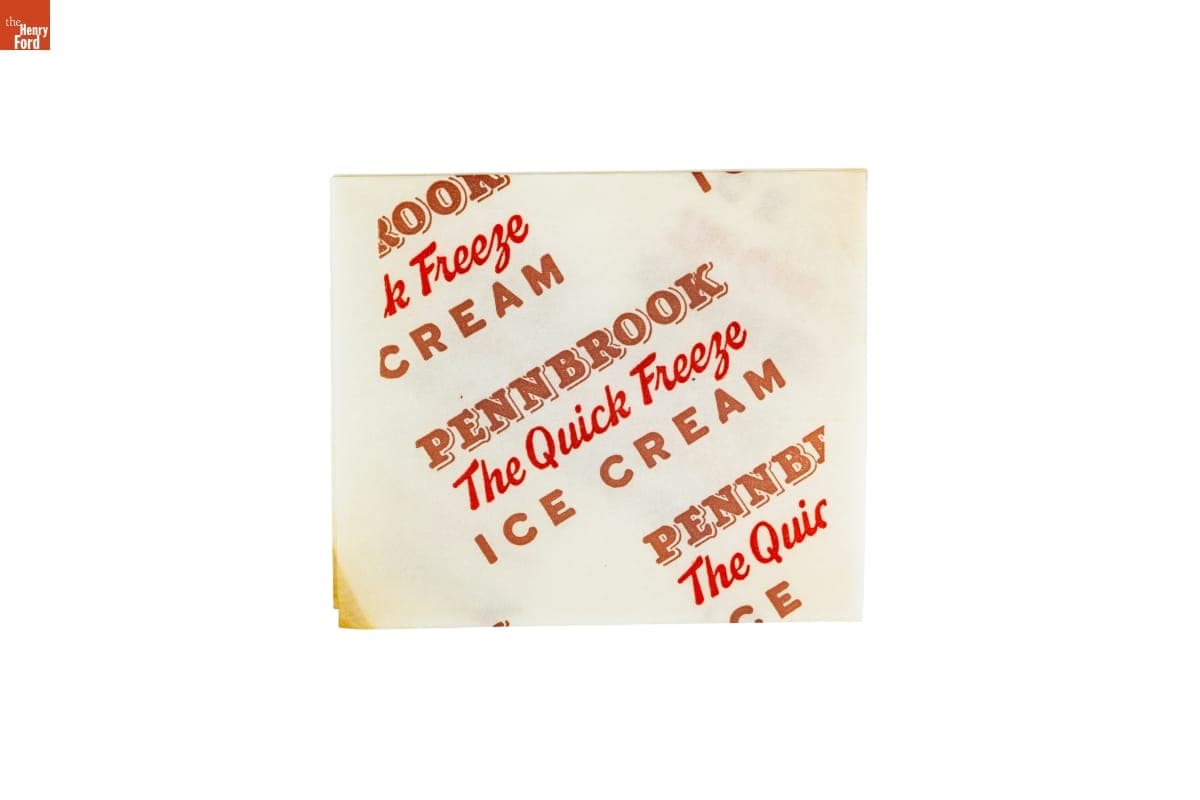 the
Henry
Ford
ROOK
k Freeze
CREAM
PENNBROOK
The Quick Freeze
ICE CREAM
PENNB
The Quic
CE